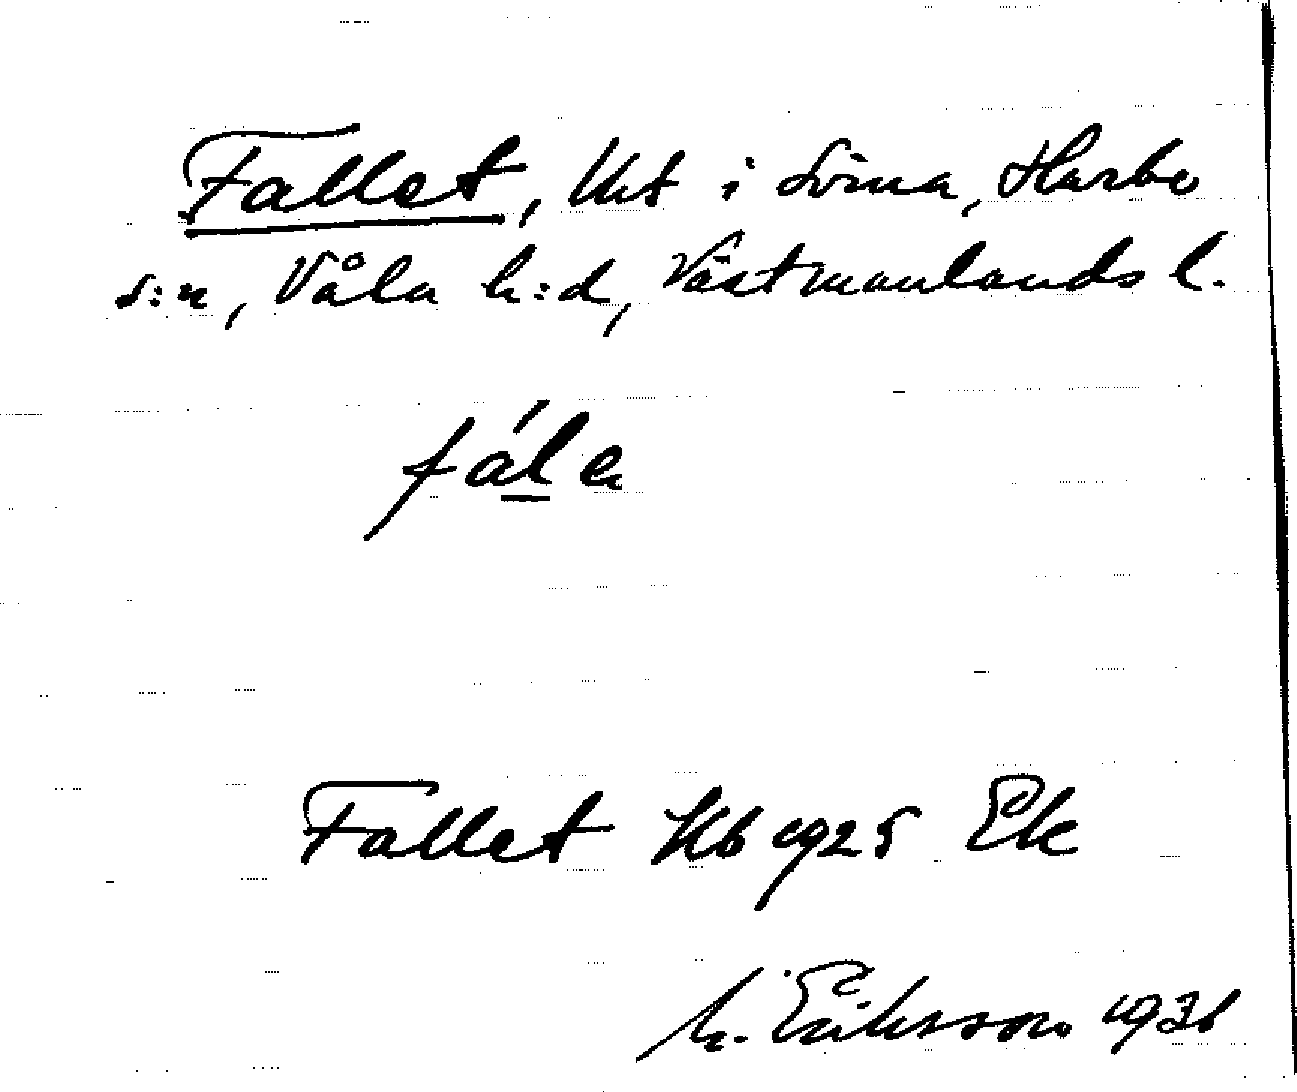 Fallet, lht i Sörna, Harbo
s:n, Våla h:d, Västmanlands l.
fál e
Fallet Hb 1925 Ek
M. Eriksson 1936